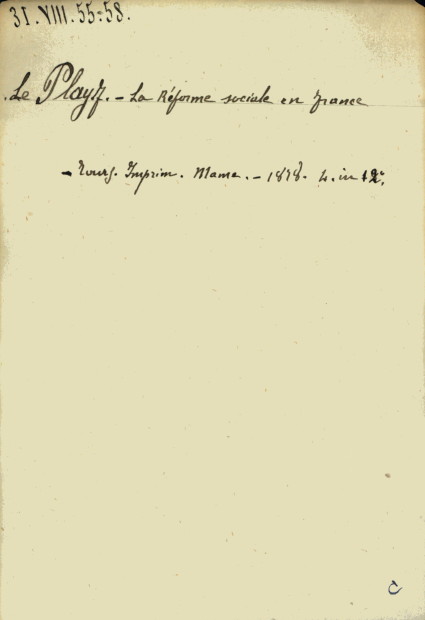 31.VIII.55=58.
Le Play F. - La Réforme sociale en France
- Tours. Imprim. Mame. - 1878. 4. in 12º.
C